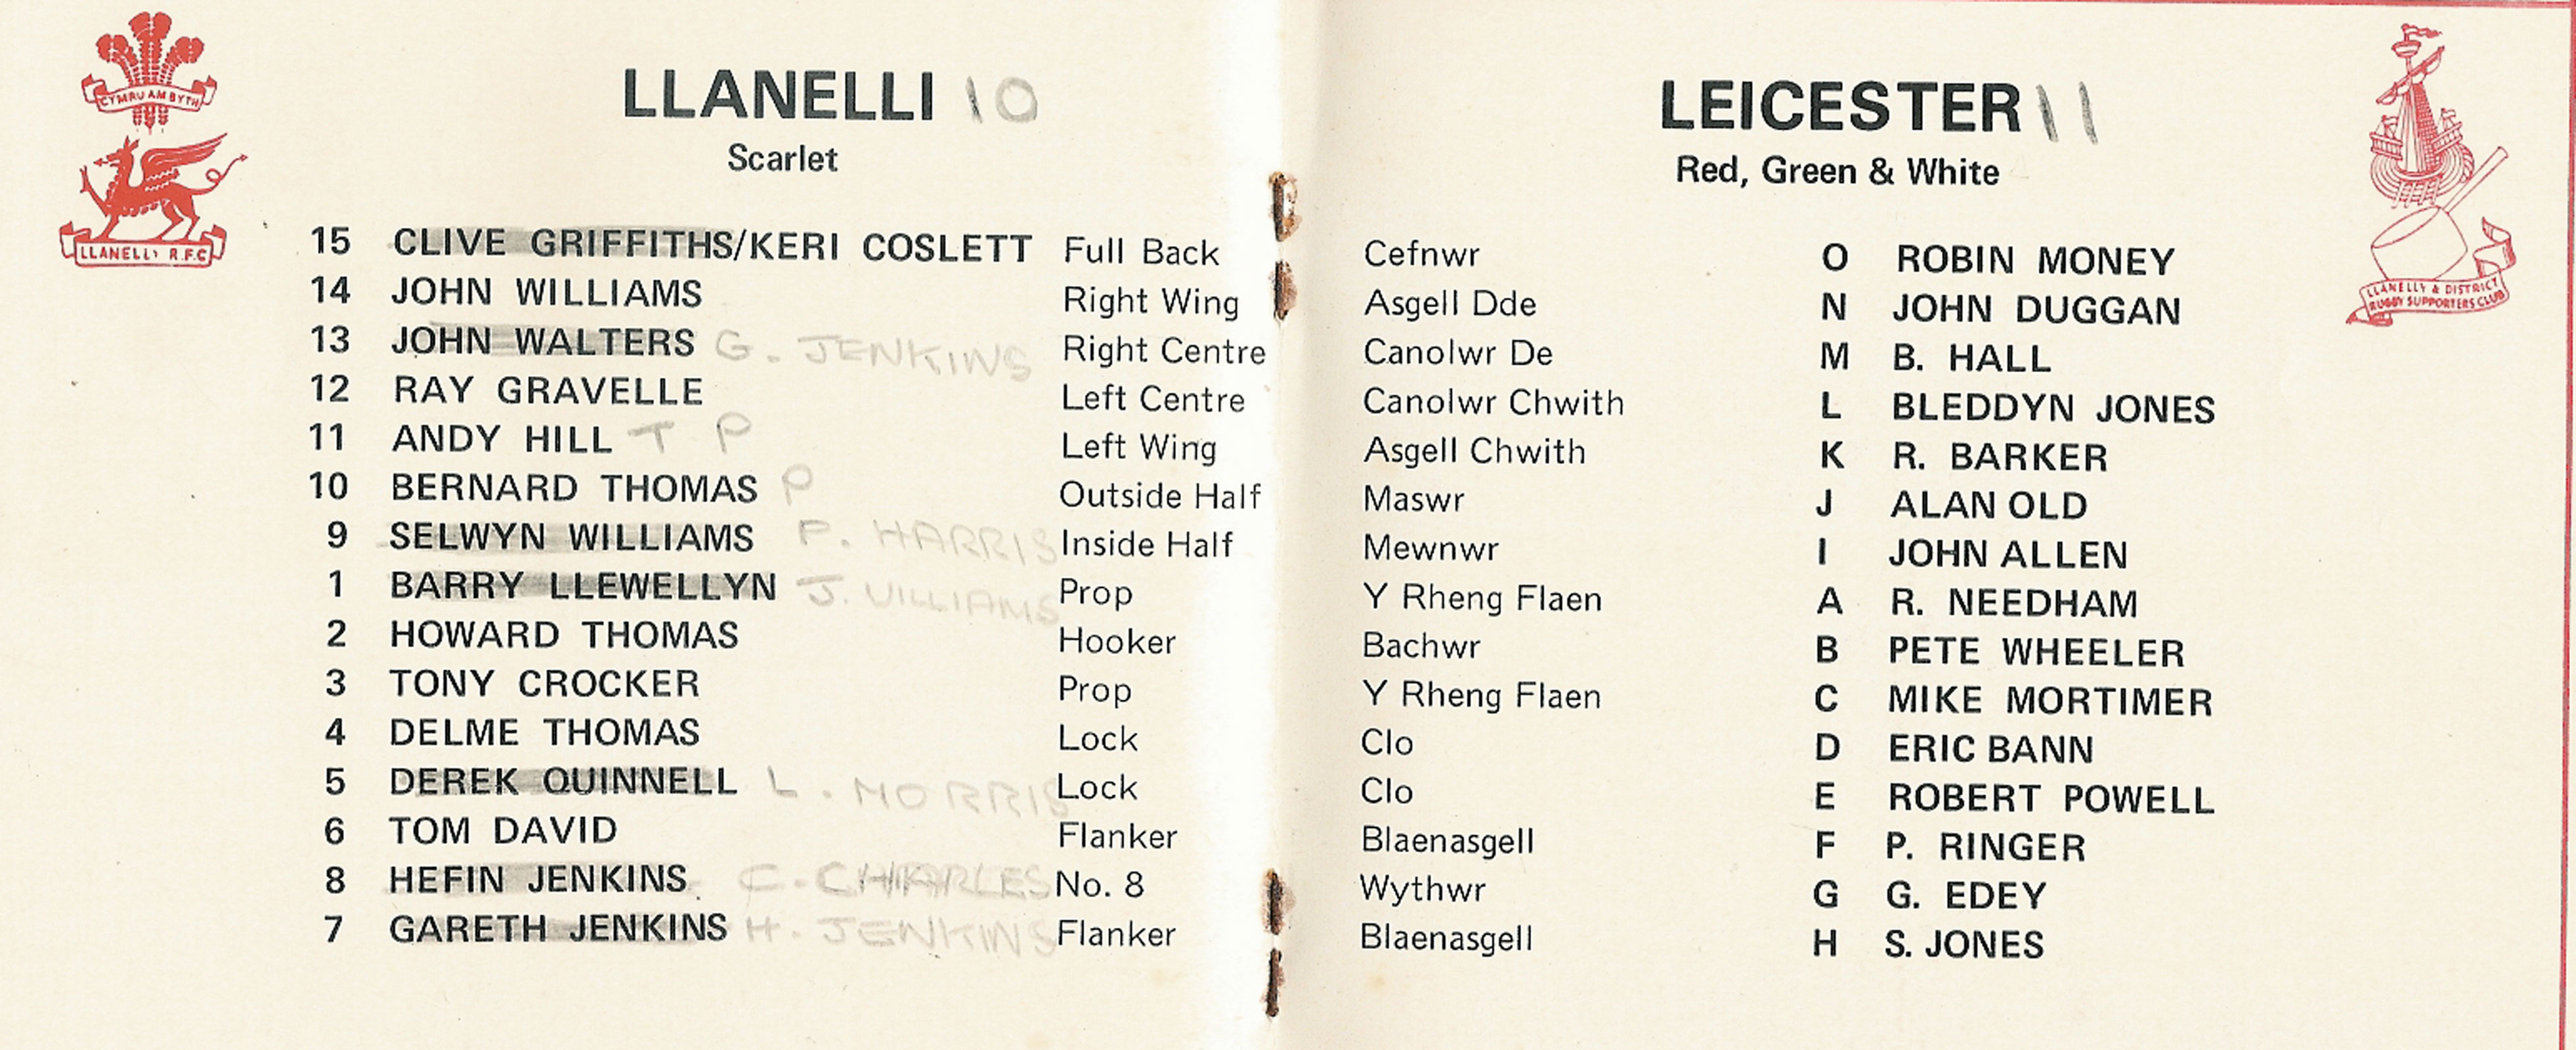 CYMRU AM BYTH
LLANELLI R.F.C
LLANELLI 10
Scarlet
15 CLIVE GRIFFITHS/KERI COSLETT Full Back
14 JOHN WILLIAMS Right Wing
13 JOHN WALTERS G. JENKINS Right Centre
12 RAY GRAVELLE Left Centre
11 ANDY HILL T P Left Wing
10 BERNARD THOMAS P Outside Half
9 SELWYN WILLIAMS P. HARRIS Inside Half
1 BARRY LLEWELLYN J. WILLIAMS Prop
2 HOWARD THOMAS Hooker
3 TONY CROCKER Prop
4 DELME THOMAS Lock
5 DEREK QUINNELL L. MORRIS Lock
6 TOM DAVID Flanker
8 HEFIN JENKINS C. CHARLES No. 8
7 GARETH JENKINS H. JENKINS Flanker
LEICESTER 11
Red, Green & White
LLANELLY & DISTRICT
RUGBY SUPPORTERS CLUB
Cefnwr O ROBIN MONEY
Asgell Dde N JOHN DUGGAN
Canolwr De M B. HALL
Canolwr Chwith L BLEDDYN JONES
Asgell Chwith K R. BARKER
Maswr J ALAN OLD
Mewnwr I JOHN ALLEN
Y Rheng Flaen A R. NEEDHAM
Bachwr B PETE WHEELER
Y Rheng Flaen C MIKE MORTIMER
Clo D ERIC BANN
Clo E ROBERT POWELL
Blaenasgell F P. RINGER
Wythwr G G. EDEY
Blaenasgell H S. JONES